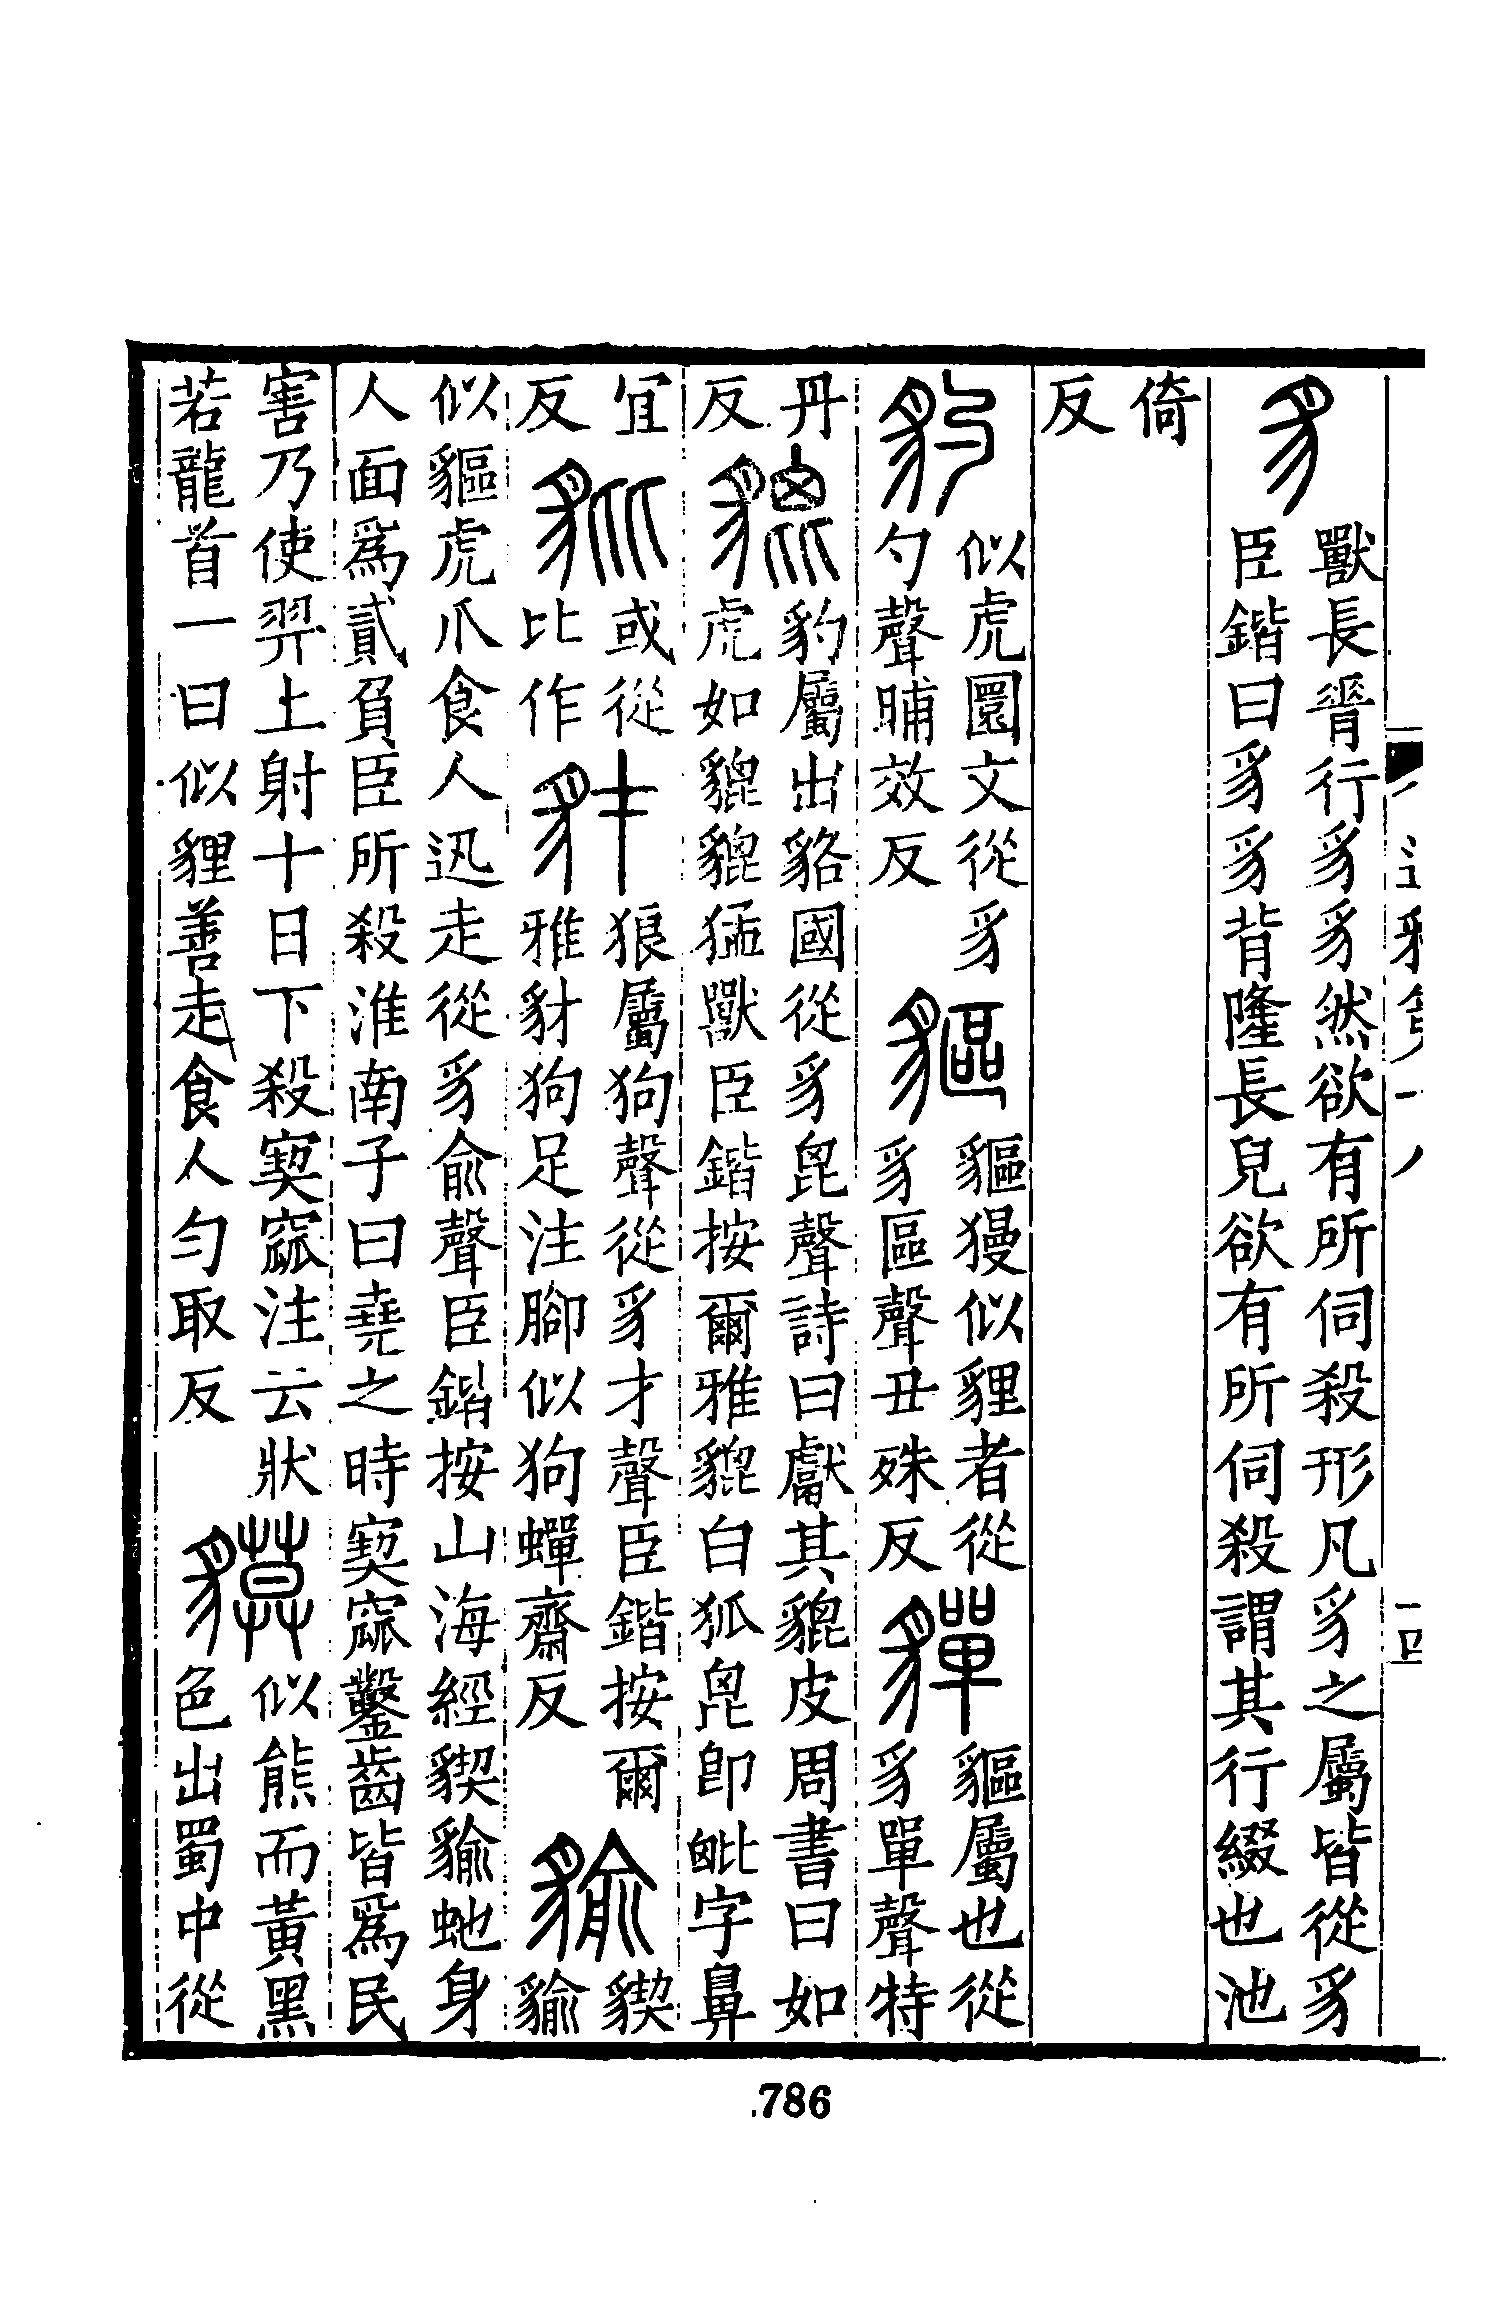 豸
獸長脊行豸豸然欲有所伺殺形凡豸之屬皆從豸
臣鍇曰豸豸背隆長皃欲有所伺殺謂其行綴也池
倚
反
豹
似虎圜文從豸
勺聲晡效反
貙
貙獌似貍者從
豸區聲丑殊反
貚
貙屬也從
豸單聲特
丹
反
貔
豹屬出貉國從豸𣬉聲詩曰獻其貔皮周書曰如
虎如貔貔猛獸臣鍇按爾雅貔白狐𣬉即毗字鼻
宜
反
豼
或從
比作
豺
狼屬狗聲從豸才聲臣鍇按爾
雅豺狗足注腳似狗蟬齋反
貐
䝟
貐
似貙虎爪食人迅走從豸俞聲臣鍇按山海經䝟貐虵身
人面爲貳負臣所殺淮南子曰堯之時窫窳鑿齒皆爲民
害乃使羿上射十日下殺窫窳注云狀
若龍首一曰似貍善走食人勻取反
貘
似熊而黃黑
色出蜀中從
786